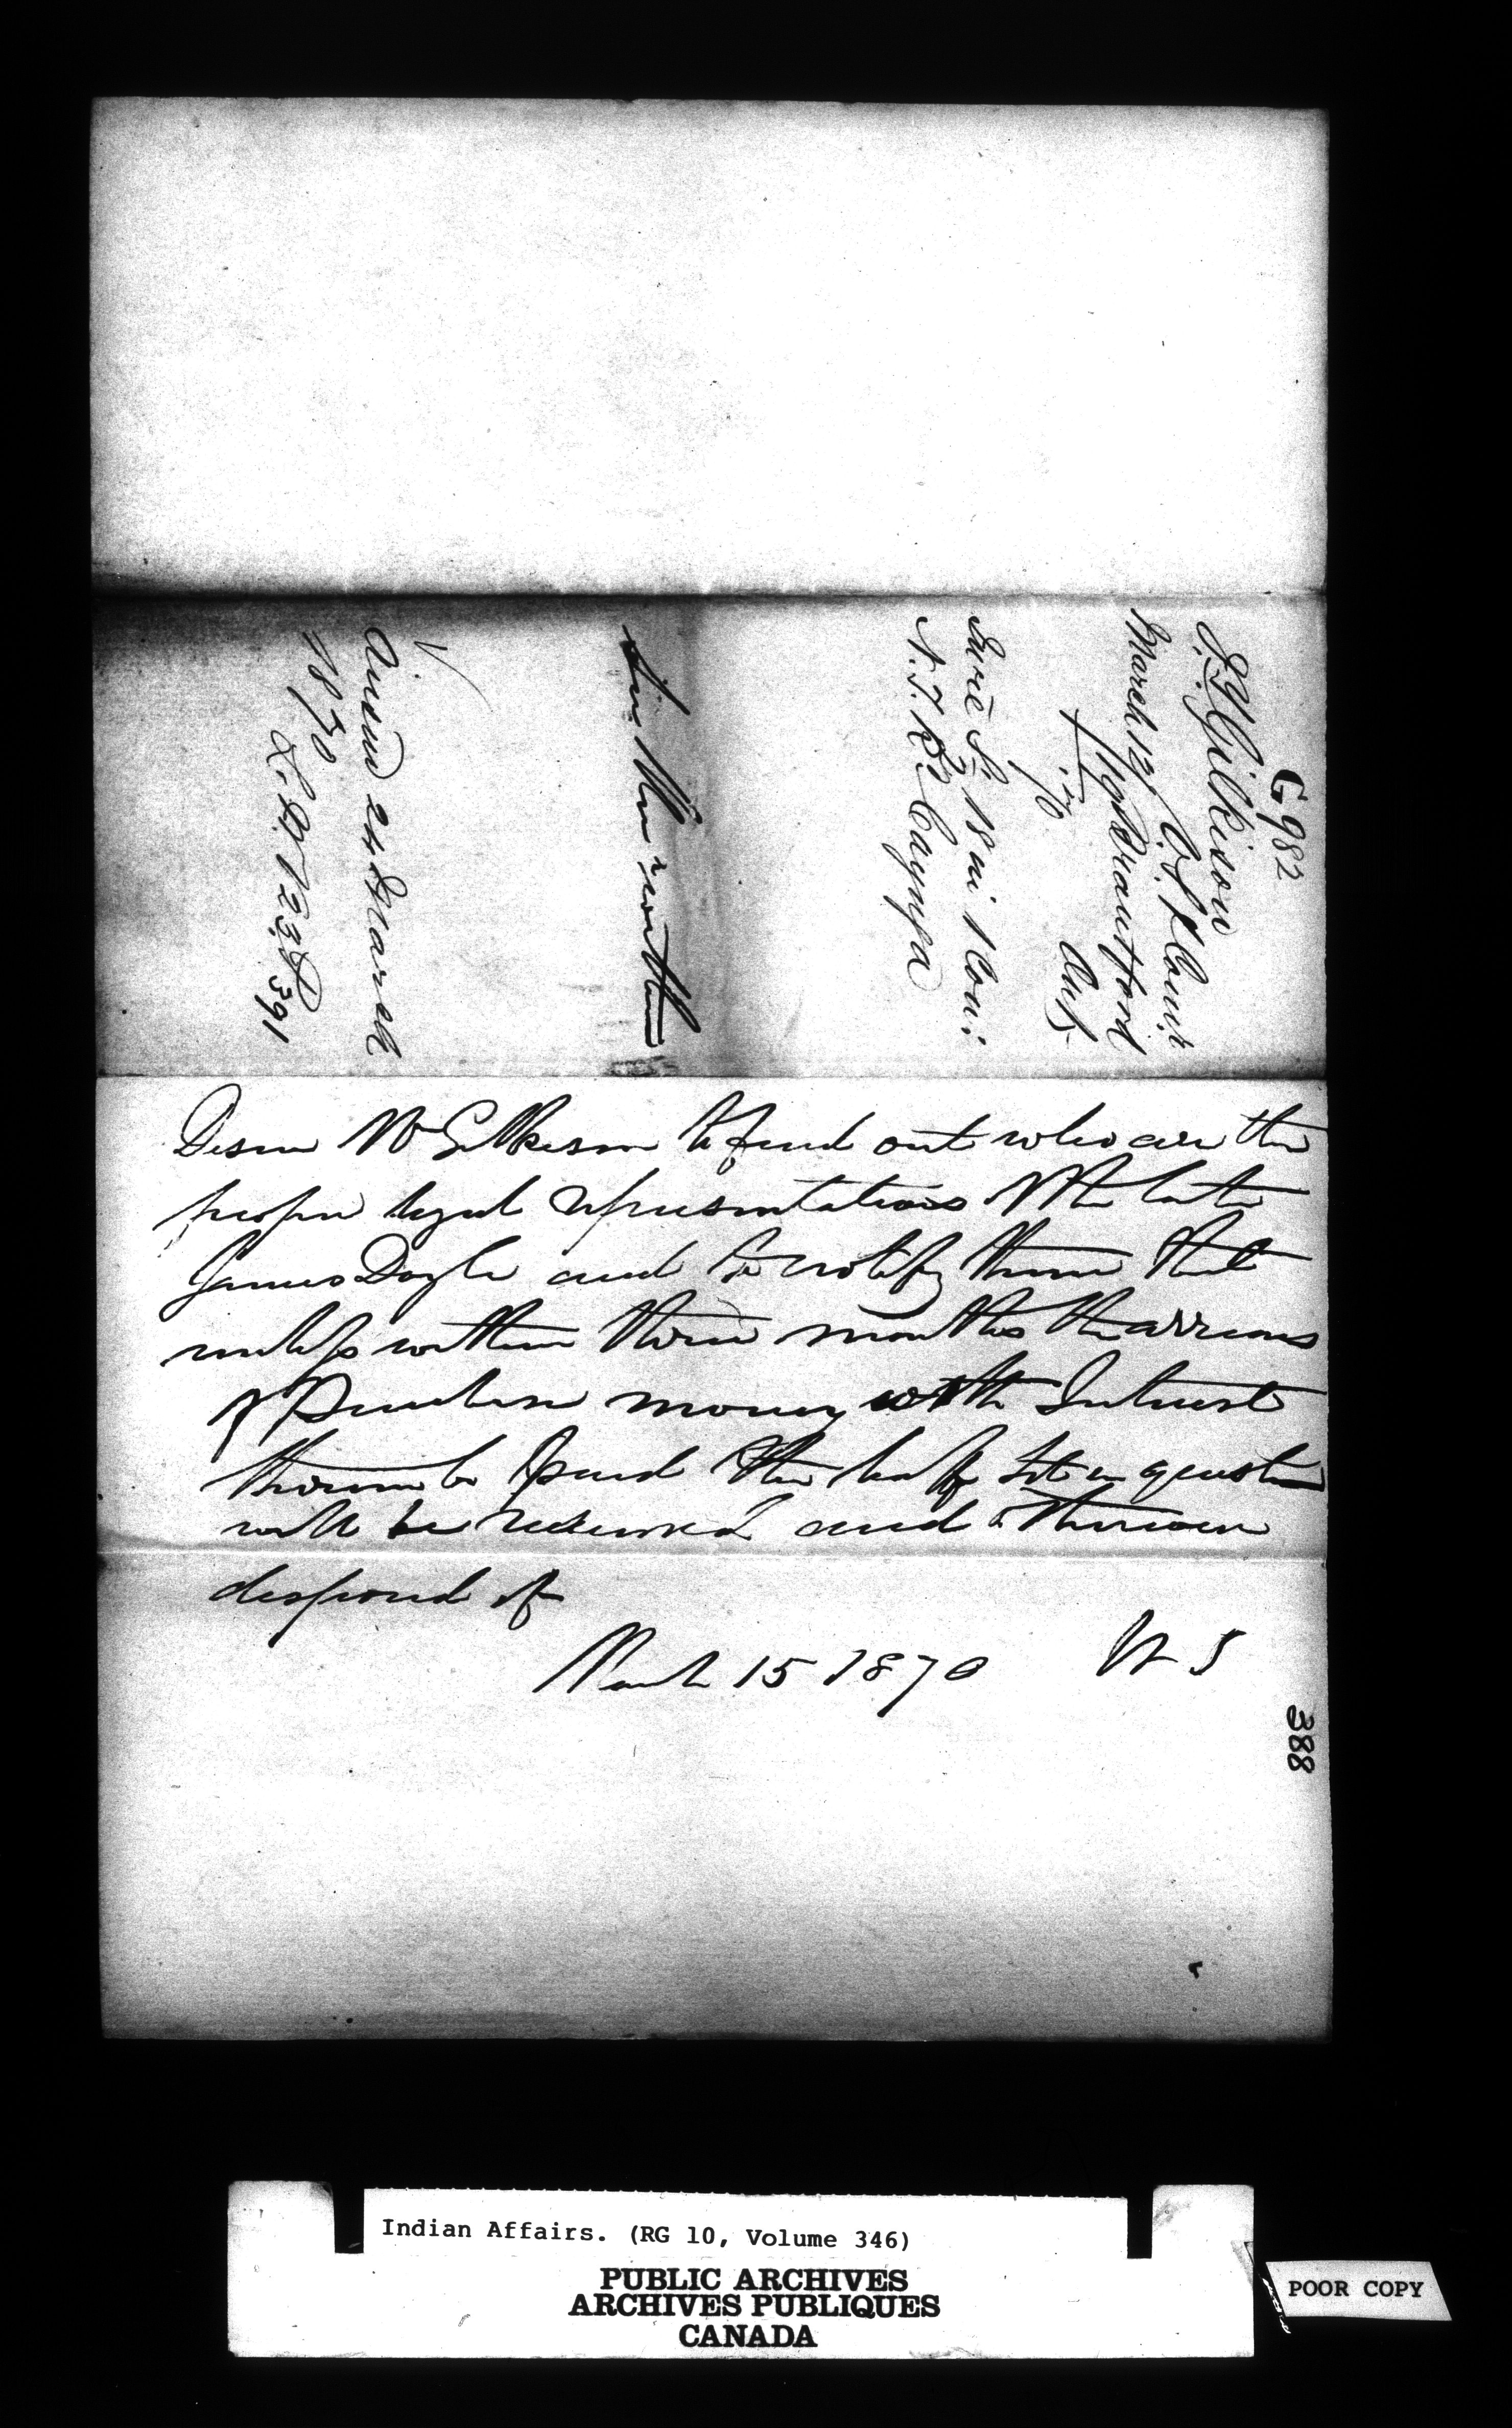 G 982
J. T. Gilkison
March 12, Off. Comr
/70 Brantford
Ont.
18 in 1 Con:
N. T. R. Cayuga
See Mem: within
Ansd 24 March
1870
391
Desire Mr Gilkison to find out who are the
proper legal representatives of the late
James Doyle and to notify them that
unless within three months the arrears
of Purchase money with Interest
thereon be paid the half lot in question
will be resumed and otherwise
disposed of
March 15 1870 W S
388
Indian Affairs. (RG 10, Volume 346)
PUBLIC ARCHIVES
ARCHIVES PUBLIQUES
CANADA
POOR COPY